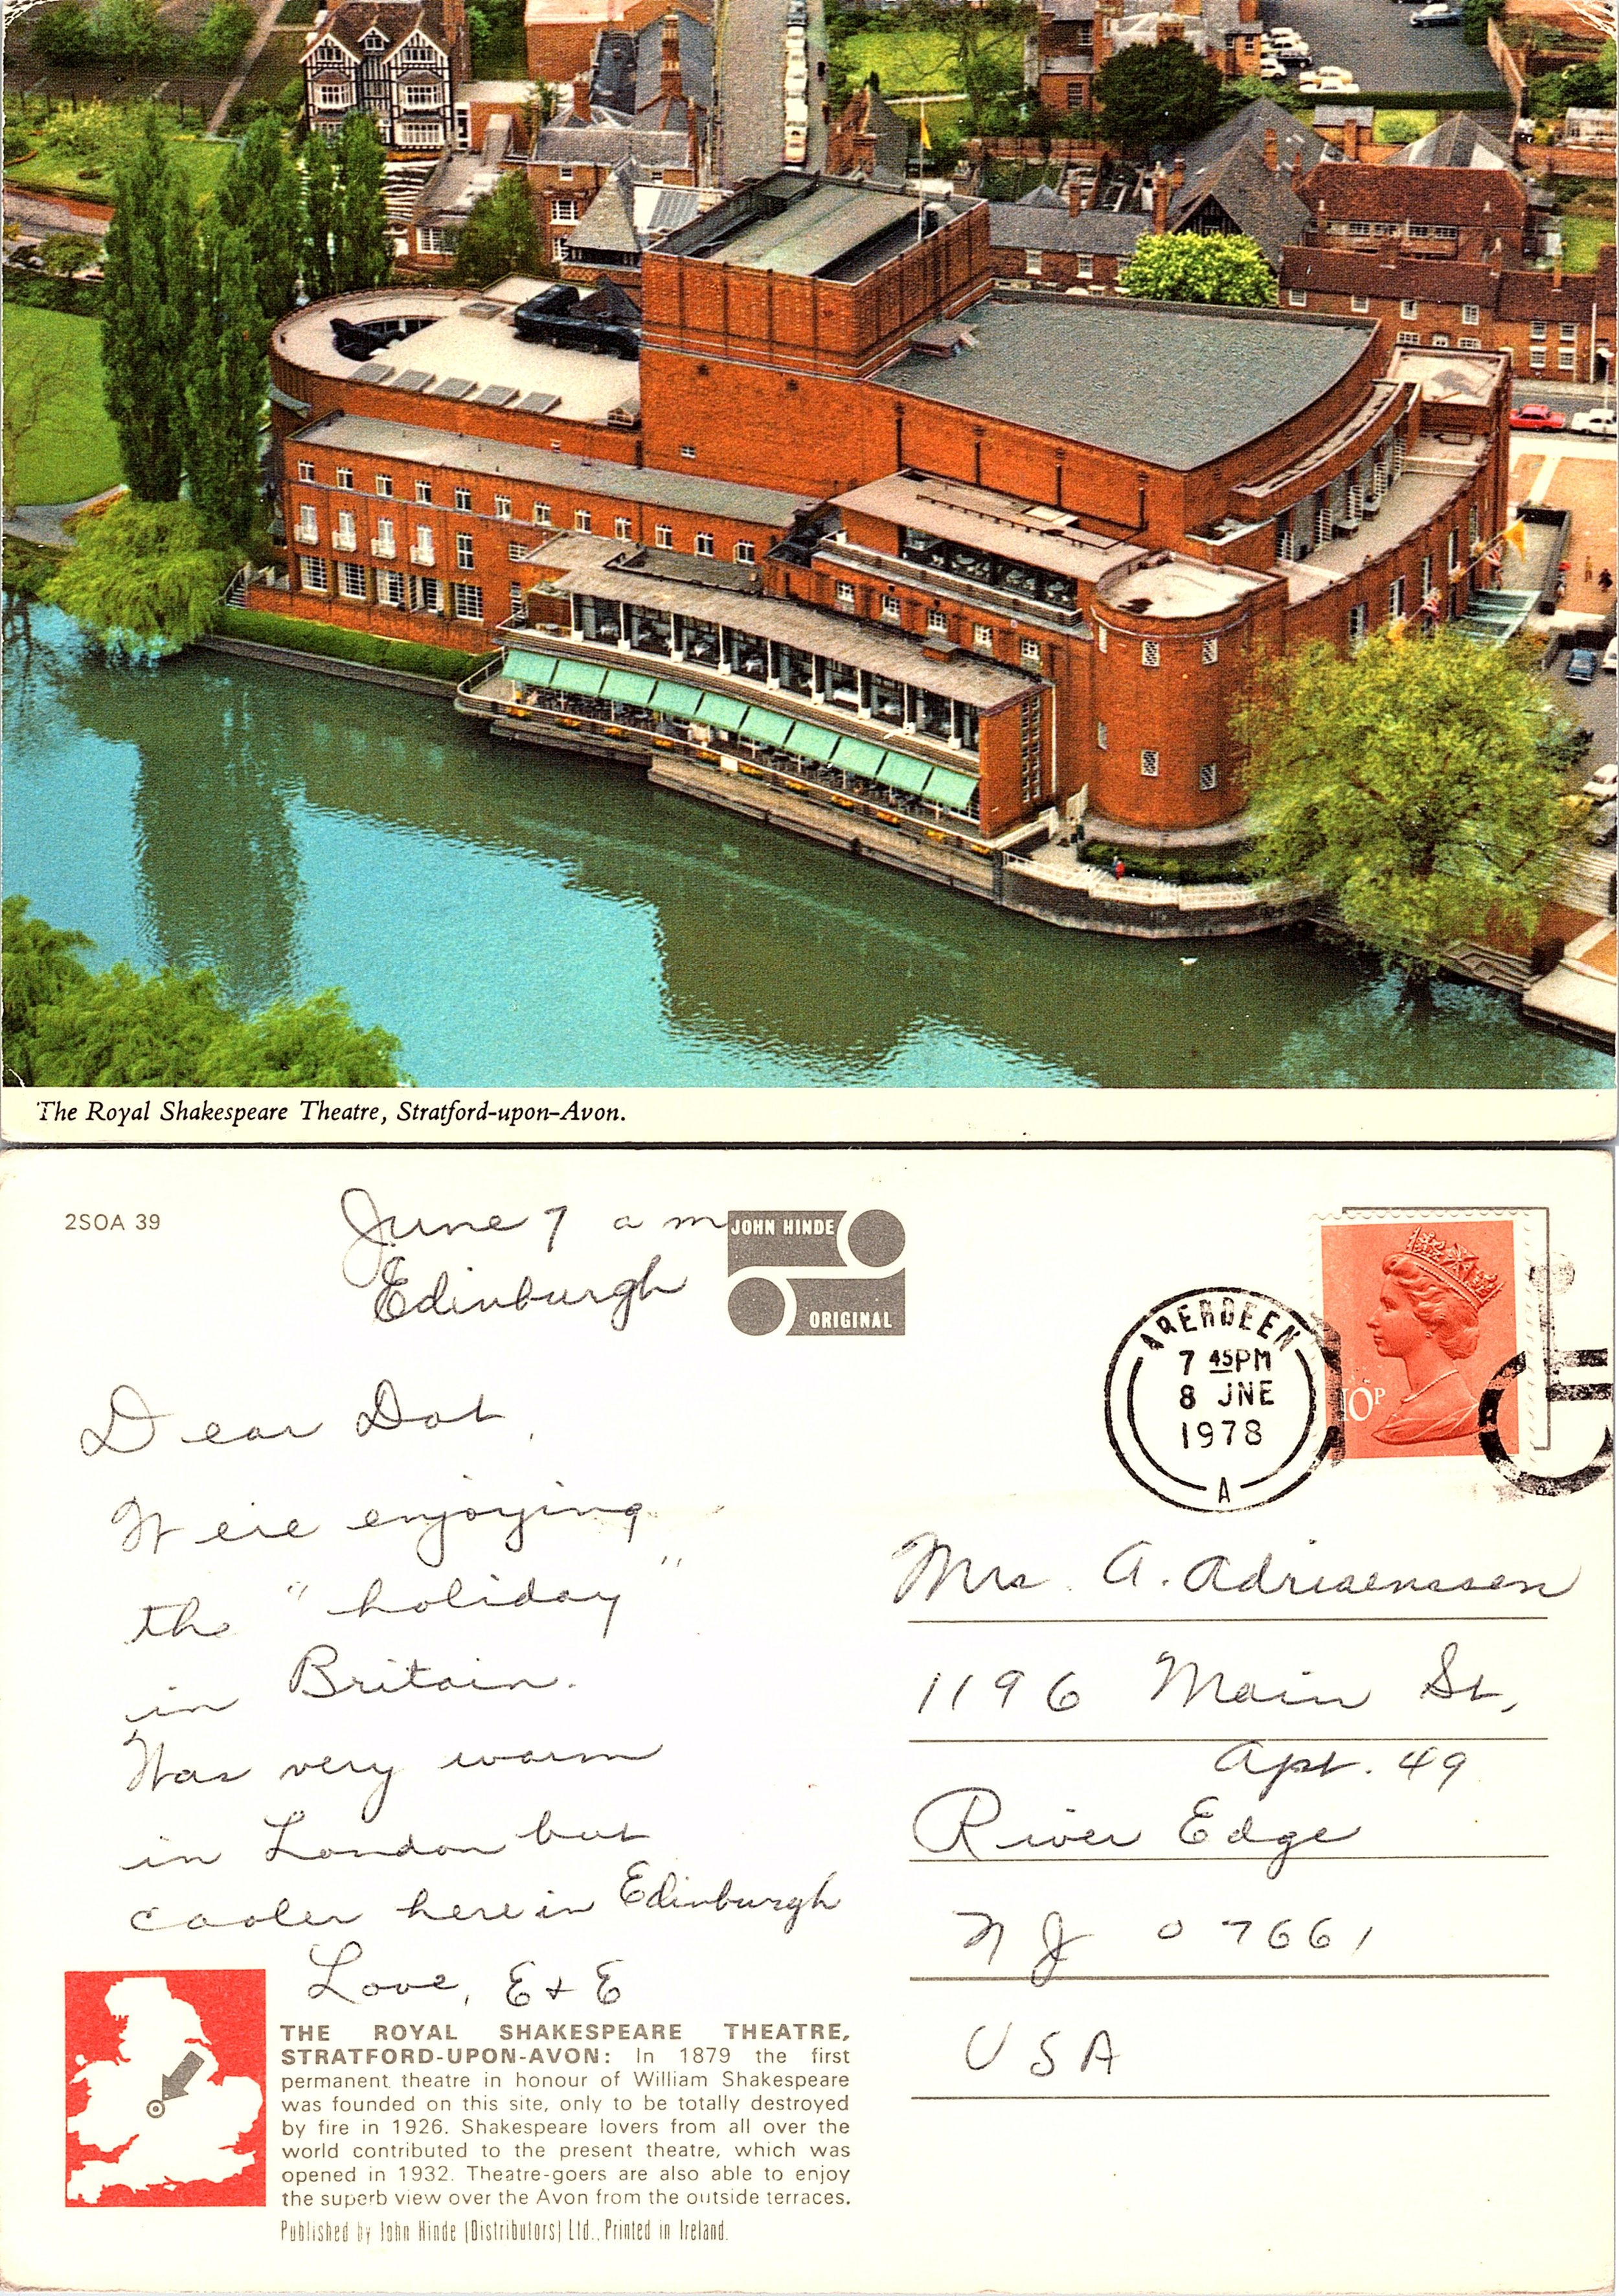 The Royal Shakespeare Theatre, Stratford-upon-Avon.
2SOA 39
June 7 a m
Edinburgh
JOHN HINDE
ORIGINAL
ABERDEEN
7 45PM
8 JNE
1978
A
10P
Dear Dot,
We're enjoying
the "holiday"
in Britain.
Was very warm
in London but
cooler here in Edinburgh
Love, E & E
Mrs. A. Adriaenssen
1196 Main St,
Apt. 49
River Edge
NJ 07661
USA
THE ROYAL SHAKESPEARE THEATRE,
STRATFORD-UPON-AVON: In 1879 the first
permanent theatre in honour of William Shakespeare
was founded on this site, only to be totally destroyed
by fire in 1926. Shakespeare lovers from all over the
world contributed to the present theatre, which was
opened in 1932. Theatre-goers are also able to enjoy
the superb view over the Avon from the outside terraces.
Published by John Hinde (Distributors) Ltd., Printed in Ireland.